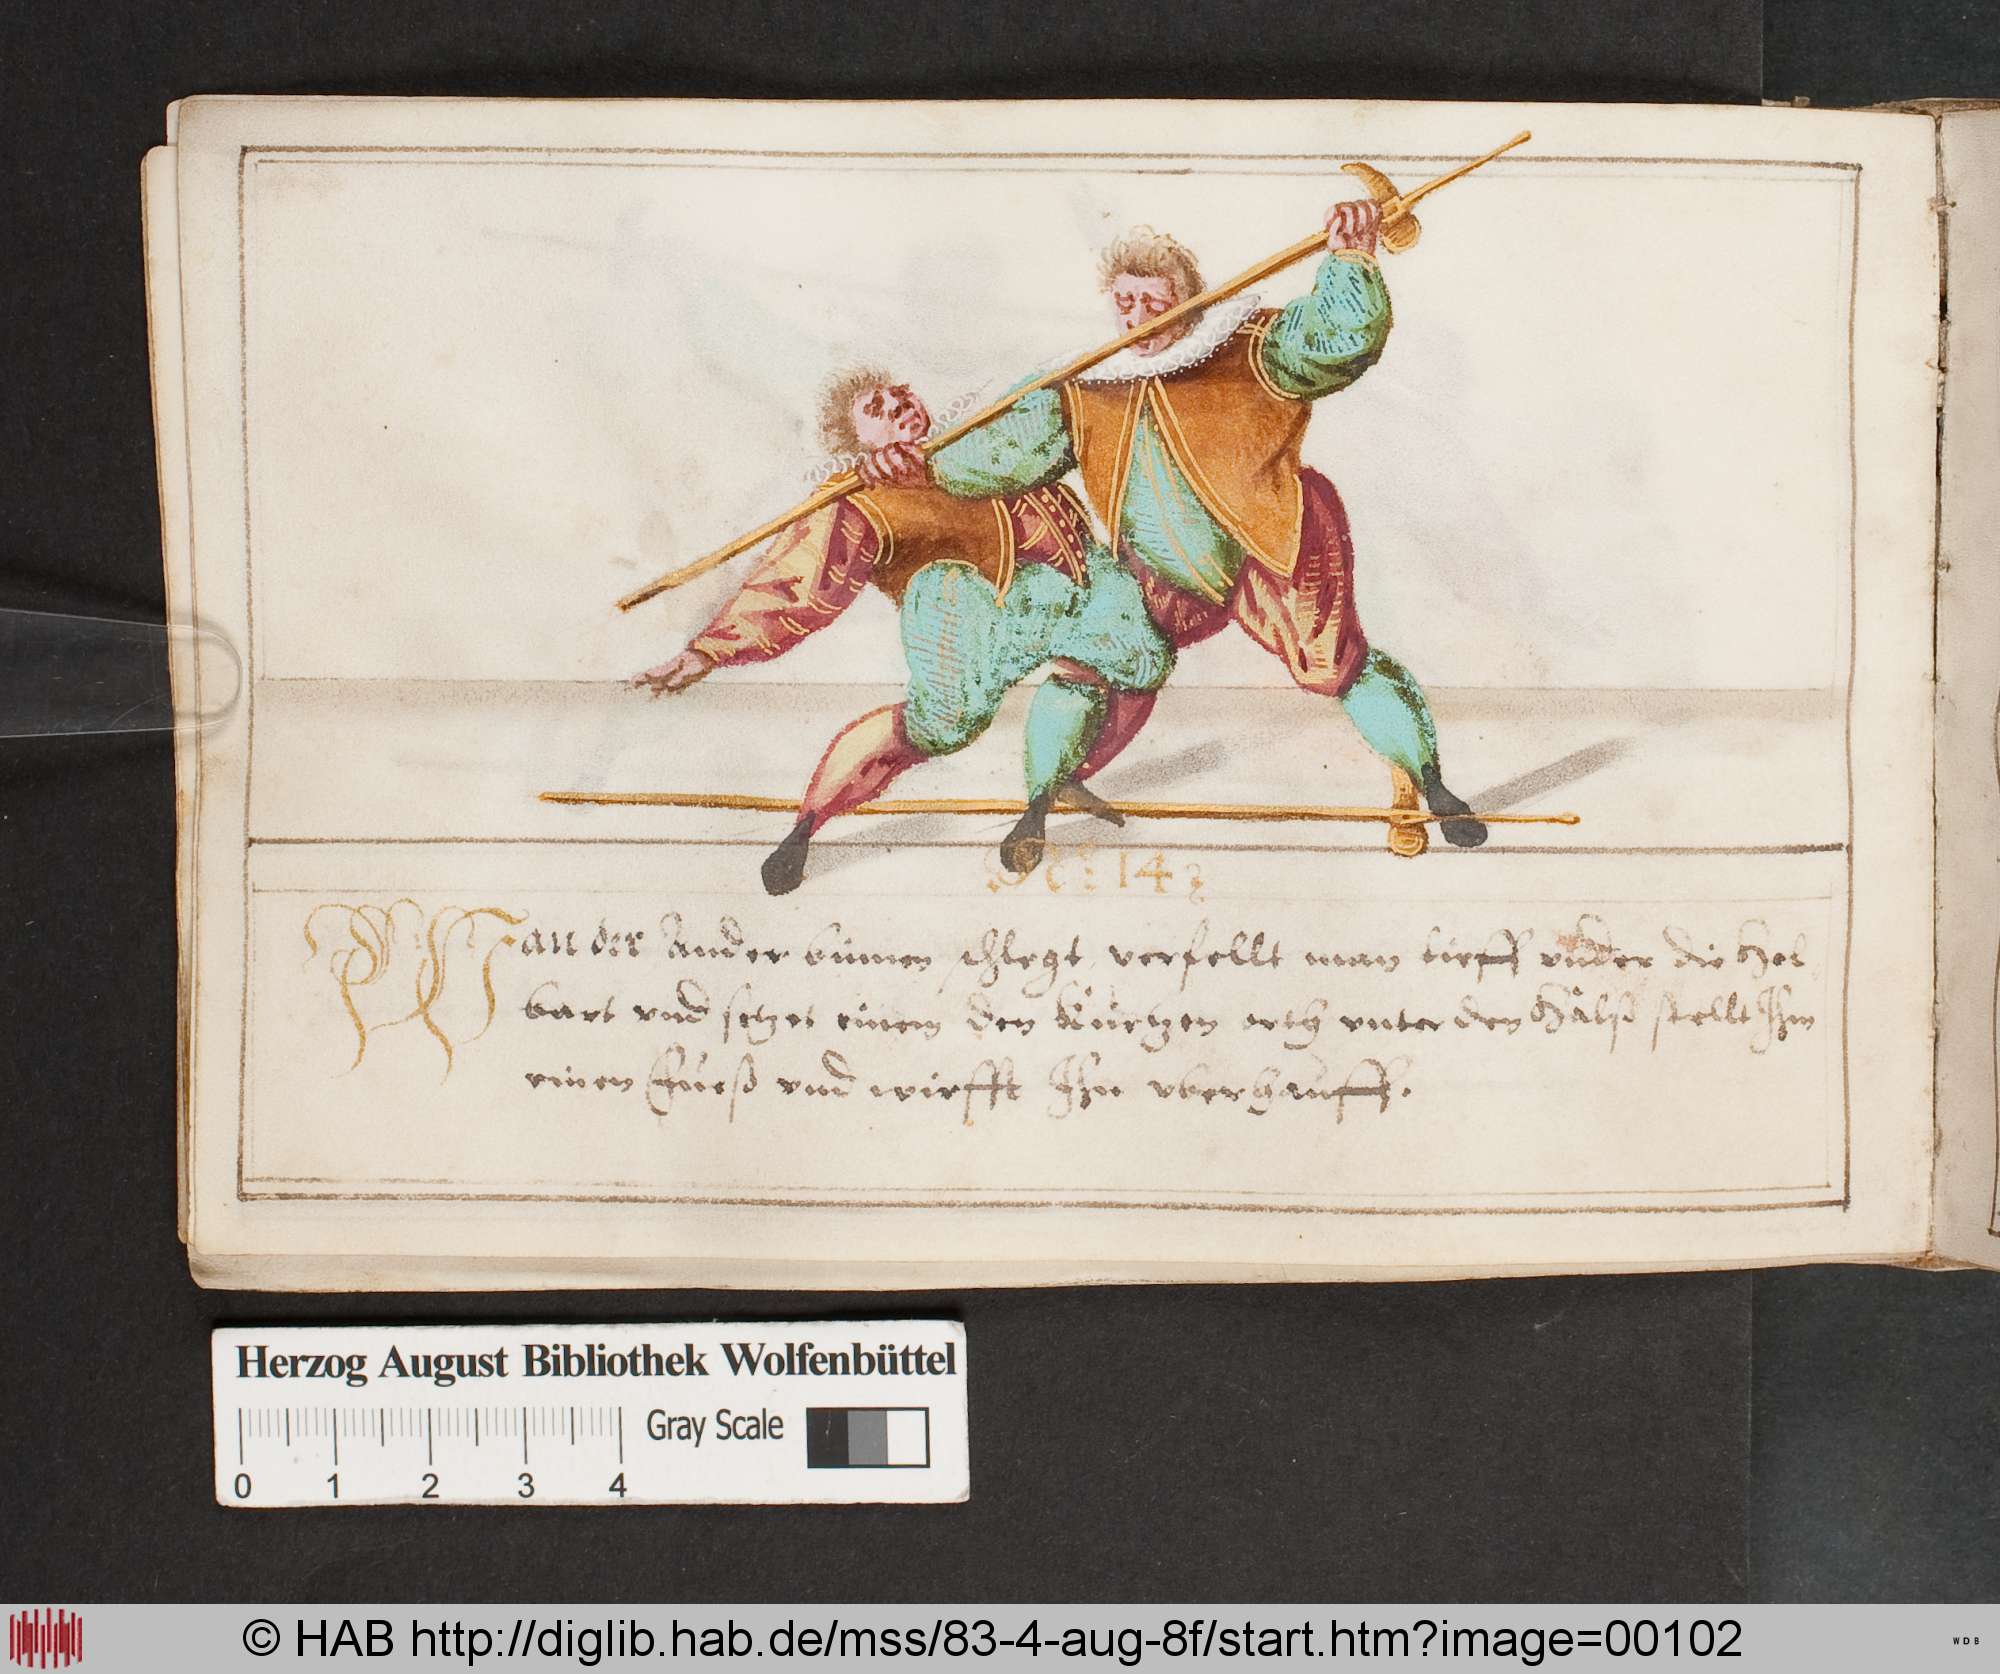 No: 14
Wan der Ander binnen schlegt verfellt man tieff vnder die Hel
bart vnd setzet einem den Kurtzen orth vnter den Halß stellt Ihm
einen Fueß vnd wirfft Ihn vberhauff.
Herzog August Bibliothek Wolfenbüttel
Gray Scale
0 1 2 3 4
© HAB http://diglib.hab.de/mss/83-4-aug-8f/start.htm?image=00102
WDB